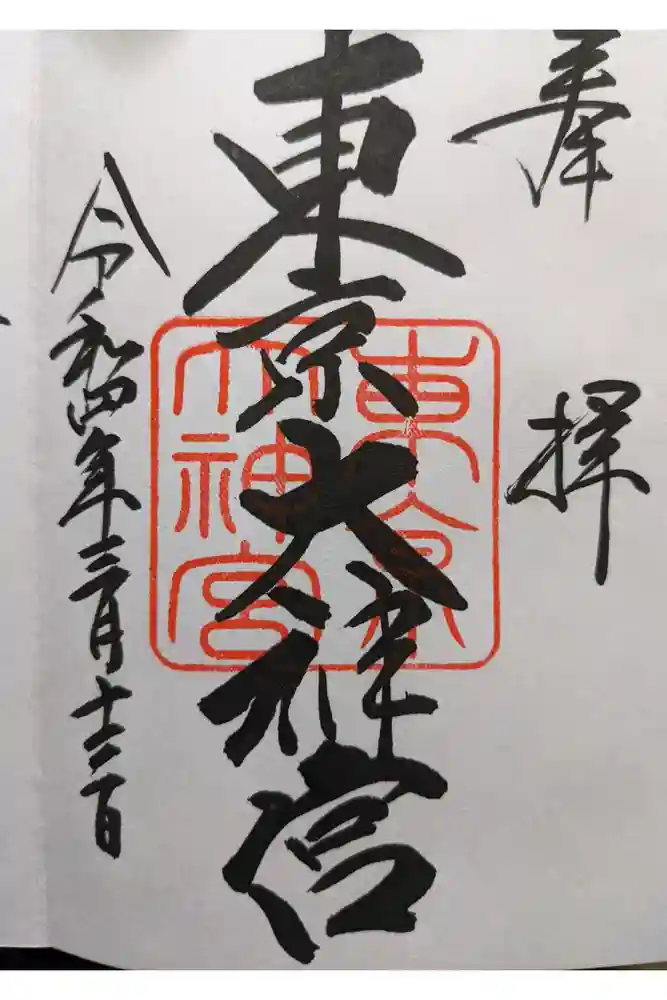 奉拝
東京大神宮
東京大神宮
令和四年三月十二日